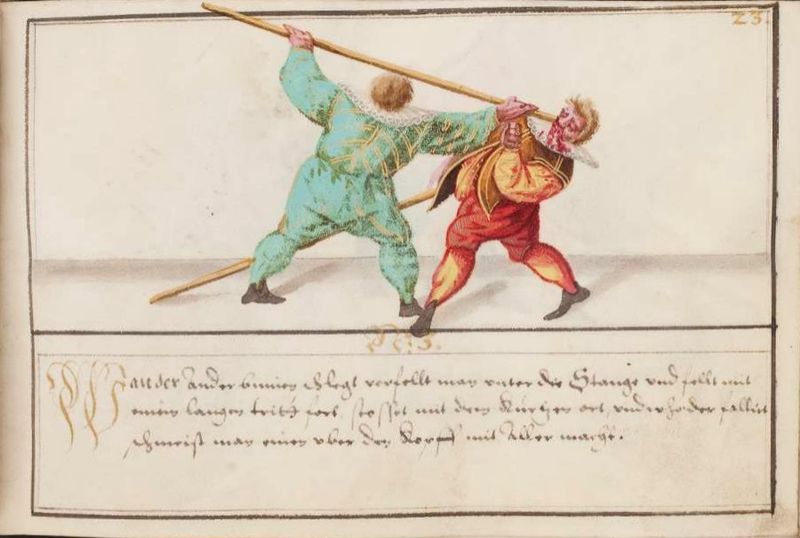 23.
N: 3.
Wan der Ander binnen schlegt verfellt man vnter die Stange vnd fellt mit
einen langen tritt fort stosset mit dem Kurtzen ort, vnd wo er der fallirt
schmeist man einen vber den Kopff mit Aller macht.